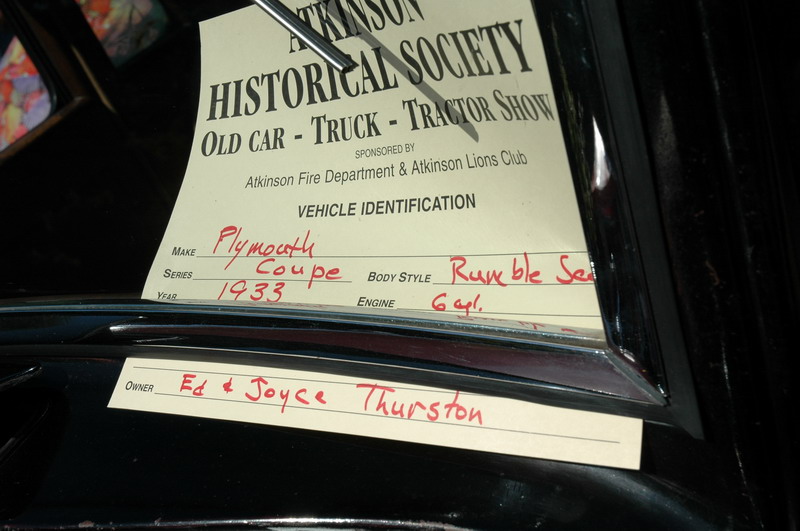 ATKINSON
HISTORICAL SOCIETY
OLD CAR - TRUCK - TRACTOR SHOW
SPONSORED BY
Atkinson Fire Department & Atkinson Lions Club
VEHICLE IDENTIFICATION
MAKE Plymouth
SERIES Coupe BODY STYLE Rumble Sea
YEAR 1933 ENGINE 6 cyl.
OWNER Ed & Joyce Thurston